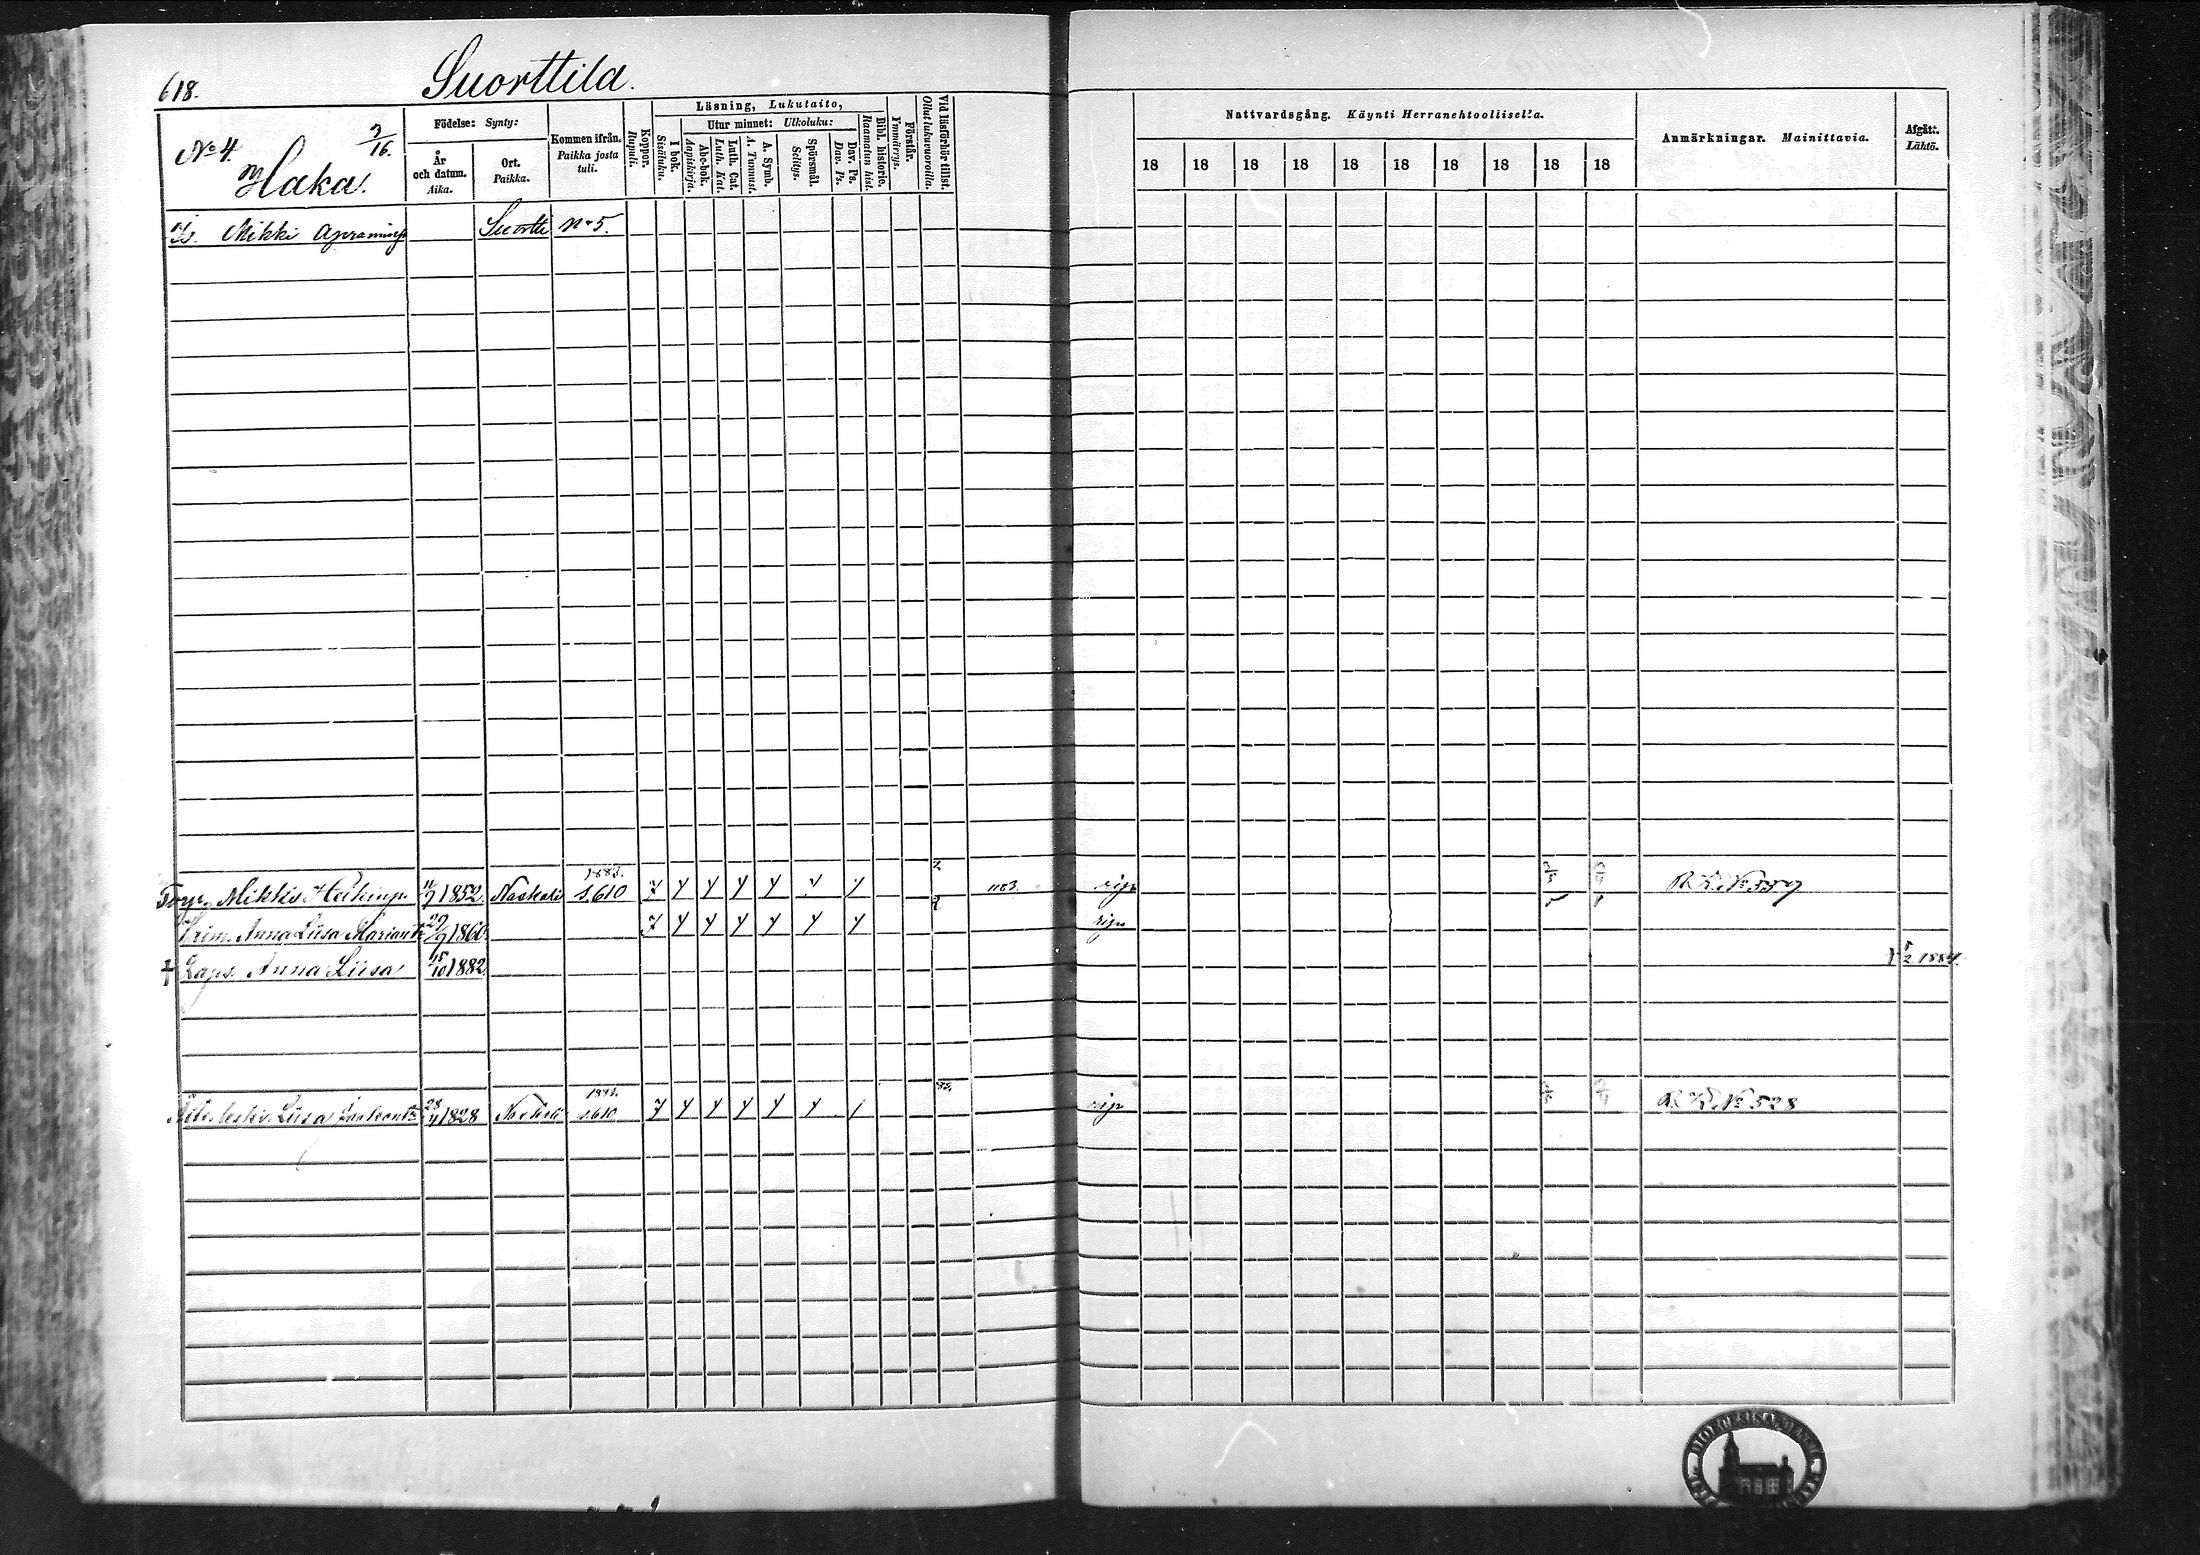 618.
Suorttila.
No 4.
3/16.
Haka.
Födelse: Synty:
År och datum. Aika.
Ort. Paikka.
Kommen ifrån. Paikka josta tuli.
Koppor. Rupuli.
Läsning, Lukutaito,
I bok. Sisäluku.
Utur minnet: Ulkoluku:
Abc-bok. Aapiskirja.
Luth. Cat. Luth. Kat.
A. Symb. A. Tunnust.
Spörsmål. Selitys.
Dav. Ps. Dav. Ps.
Bibl. historie. Raamatun hist.
Förstår. Ymmärrys.
Vid läsförhör tillst. Ollut lukuvuoroilla.
Nattvardsgång. Käynti Herranehtoollisella.
18 18 18 18 18 18 18 18 18 18
Anmärkningar. Mainittavia.
Afgått. Lähtö.
Mikki Suortti No 5.
1883.
Mikki Heikinp. 11/9 1852 Naskali s. 610 1103. rip. R. K. No 559
Anna Liisa 29/9 1860 rip.
† Laps. Anna Liisa 15/10 1882 † 5/2 1884.
1883.
Leski Liisa 1828 s. 610 rip R. K. No 528